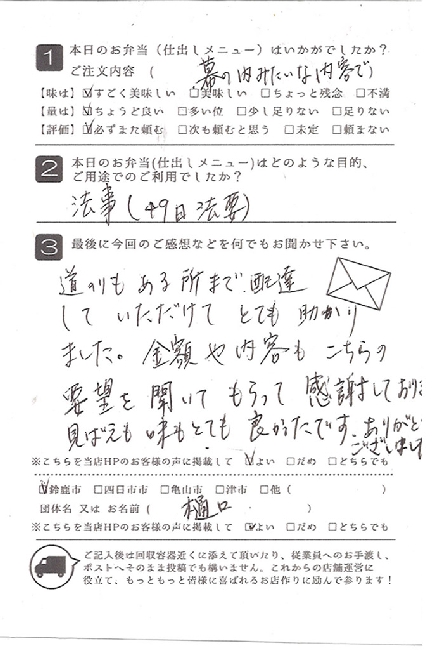 1 本日のお弁当（仕出しメニュー）はいかがでしたか？
ご注文内容 ( 幕の内みたいな内容で )
【味は】☑すごく美味しい □美味しい □ちょっと残念 □不満
【量は】☑ちょうど良い □多い位 □少し足りない □足りない
【評価】☑必ずまた頼む □次も頼むと思う □未定 □頼まない
2 本日のお弁当(仕出しメニュー)はどのような目的、
ご用途でのご利用でしたか？
法事(49日法要)
3 最後に今回のご感想などを何でもお聞かせ下さい。
道のりもある所まで配達
していただけてとても助かり
ました。金額や内容もこちらの
要望を聞いてもらって感謝しております
見ばえも味もとても良かったです。ありがとう
ございました
※こちらを当店HPのお客様の声に掲載して ☑よい □だめ □どちらでも
☑鈴鹿市 □四日市市 □亀山市 □津市 □他 ( )
団体名 又は お名前 ( 樋口 )
※こちらを当店HPのお客様の声に掲載して ☑よい □だめ □どちらでも
ご記入後は回収容器近くに添えて頂いたり、従業員へのお手渡し、
ポストへそのまま投稿でも構いません。これからの店舗運営に
役立て、もっともっと皆様に喜ばれるお店作りに励んで参ります！